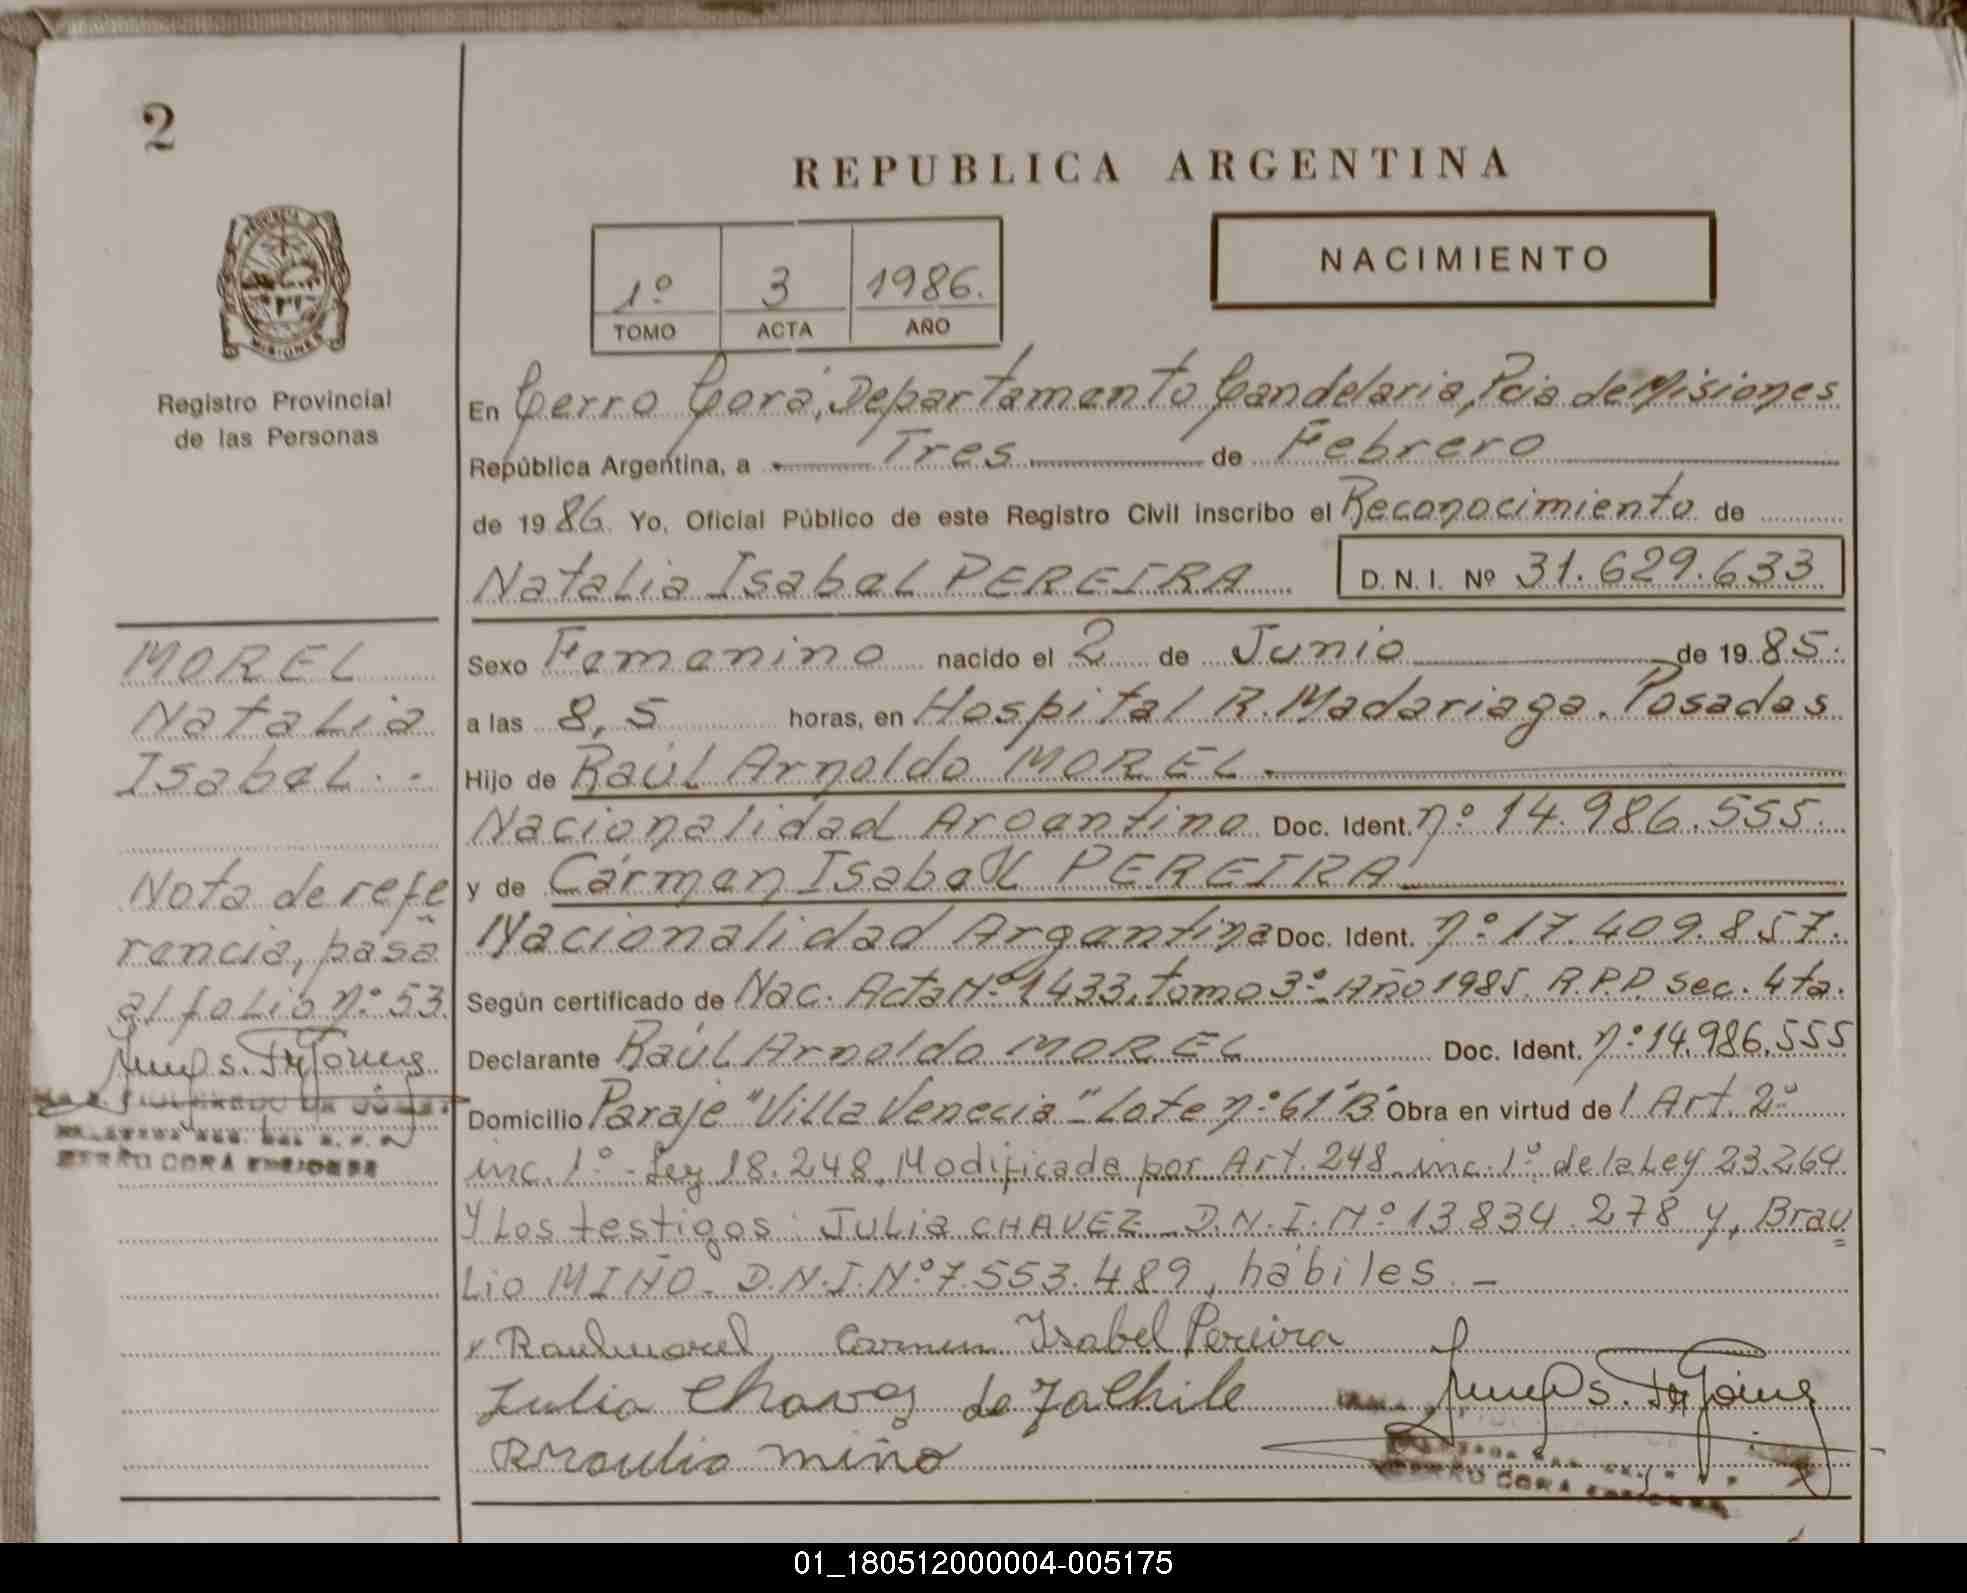 2
REPUBLICA ARGENTINA
PROVINCIA
MISIONES
Registro Provincial
de las Personas
1º 3 1986.
TOMO ACTA AÑO
NACIMIENTO
En Cerro Corá, Departamento Candelaria, Pcia de Misiones
República Argentina, a Tres de Febrero
de 1986. Yo, Oficial Público de este Registro Civil inscribo el Reconocimiento de
Natalia Isabel PEREIRA D.N.I. Nº 31.629.633
Sexo Femenino nacido el 2 de Junio de 1985.
a las 8,5 horas, en Hospital R. Madariaga. Posadas
Hijo de Raúl Arnoldo MOREL
Nacionalidad Argentino Doc. Ident. nº 14.986.555.
y de Cármen Isabel PEREIRA
Nacionalidad Argentina Doc. Ident. nº 17.409.857.
Según certificado de Nac. Acta Nº 1433, tomo 3º Año 1985. R.P.P. Sec. 4ta.
Declarante Raúl Arnoldo MOREL Doc. Ident. nº 14.986.555
Domicilio Paraje "Villa Venecia" Lote nº 61"B" Obra en virtud del Art. 2º
inc. 1º - Ley 18.248, Modificada por Art. 248 inc. 1º de la Ley 23264
Y Los testigos: JULia CHAVEZ D.N.I. Nº 13.834.278 y, Brau
Lio MIÑO - D.N.I. Nº 7.553.489, hábiles. -
Raul morel Carmen Isabel Pereira
Julia Chavez de
Braulio miño
CORA
MOREL
Natalia
Isabel. -
Nota de refe
rencia, pasa
al folio nº 53.
CERRO CORA
01_180512000004-005175